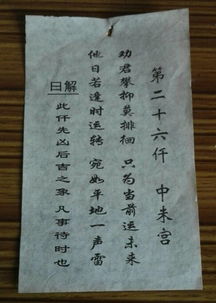 第二十六仟 中未宫
劝君攀抑莫排徊 只为当前运未来
他日若逢时运转 宛如平地一声雷
曰解
此仟先凶后吉之象 凡事待时也